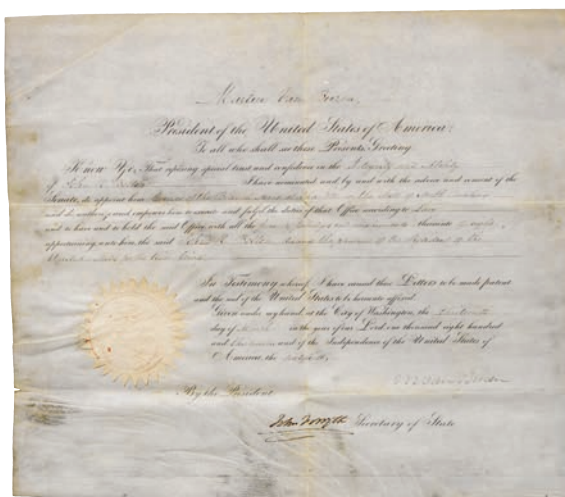 Martin Van Buren,
President of the United States of America:
To all who shall see these Presents, Greeting:
Know Ye, That reposing special trust and confidence in the Integrity and Ability
of John I have nominated and by and with the advice and consent of the
Senate, do appoint him of the
and do authorize and empower him to execute and fulfil the duties of that Office according to Law;
and to have and to hold the said Office, with all the and emoluments thereunto of right
appertaining, unto him the said during the pleasure of the President of the
United States for the time being.
In Testimony whereof, I have caused these Letters to be made patent
and the seal of the United States to be hereunto affixed.
Given under my hand, at the City of Washington, the
day of March in the year of our Lord, one thousand eight hundred
and and of the Independence of the United States of
America, the
M Van Buren
By the President
John Forsyth Secretary of State